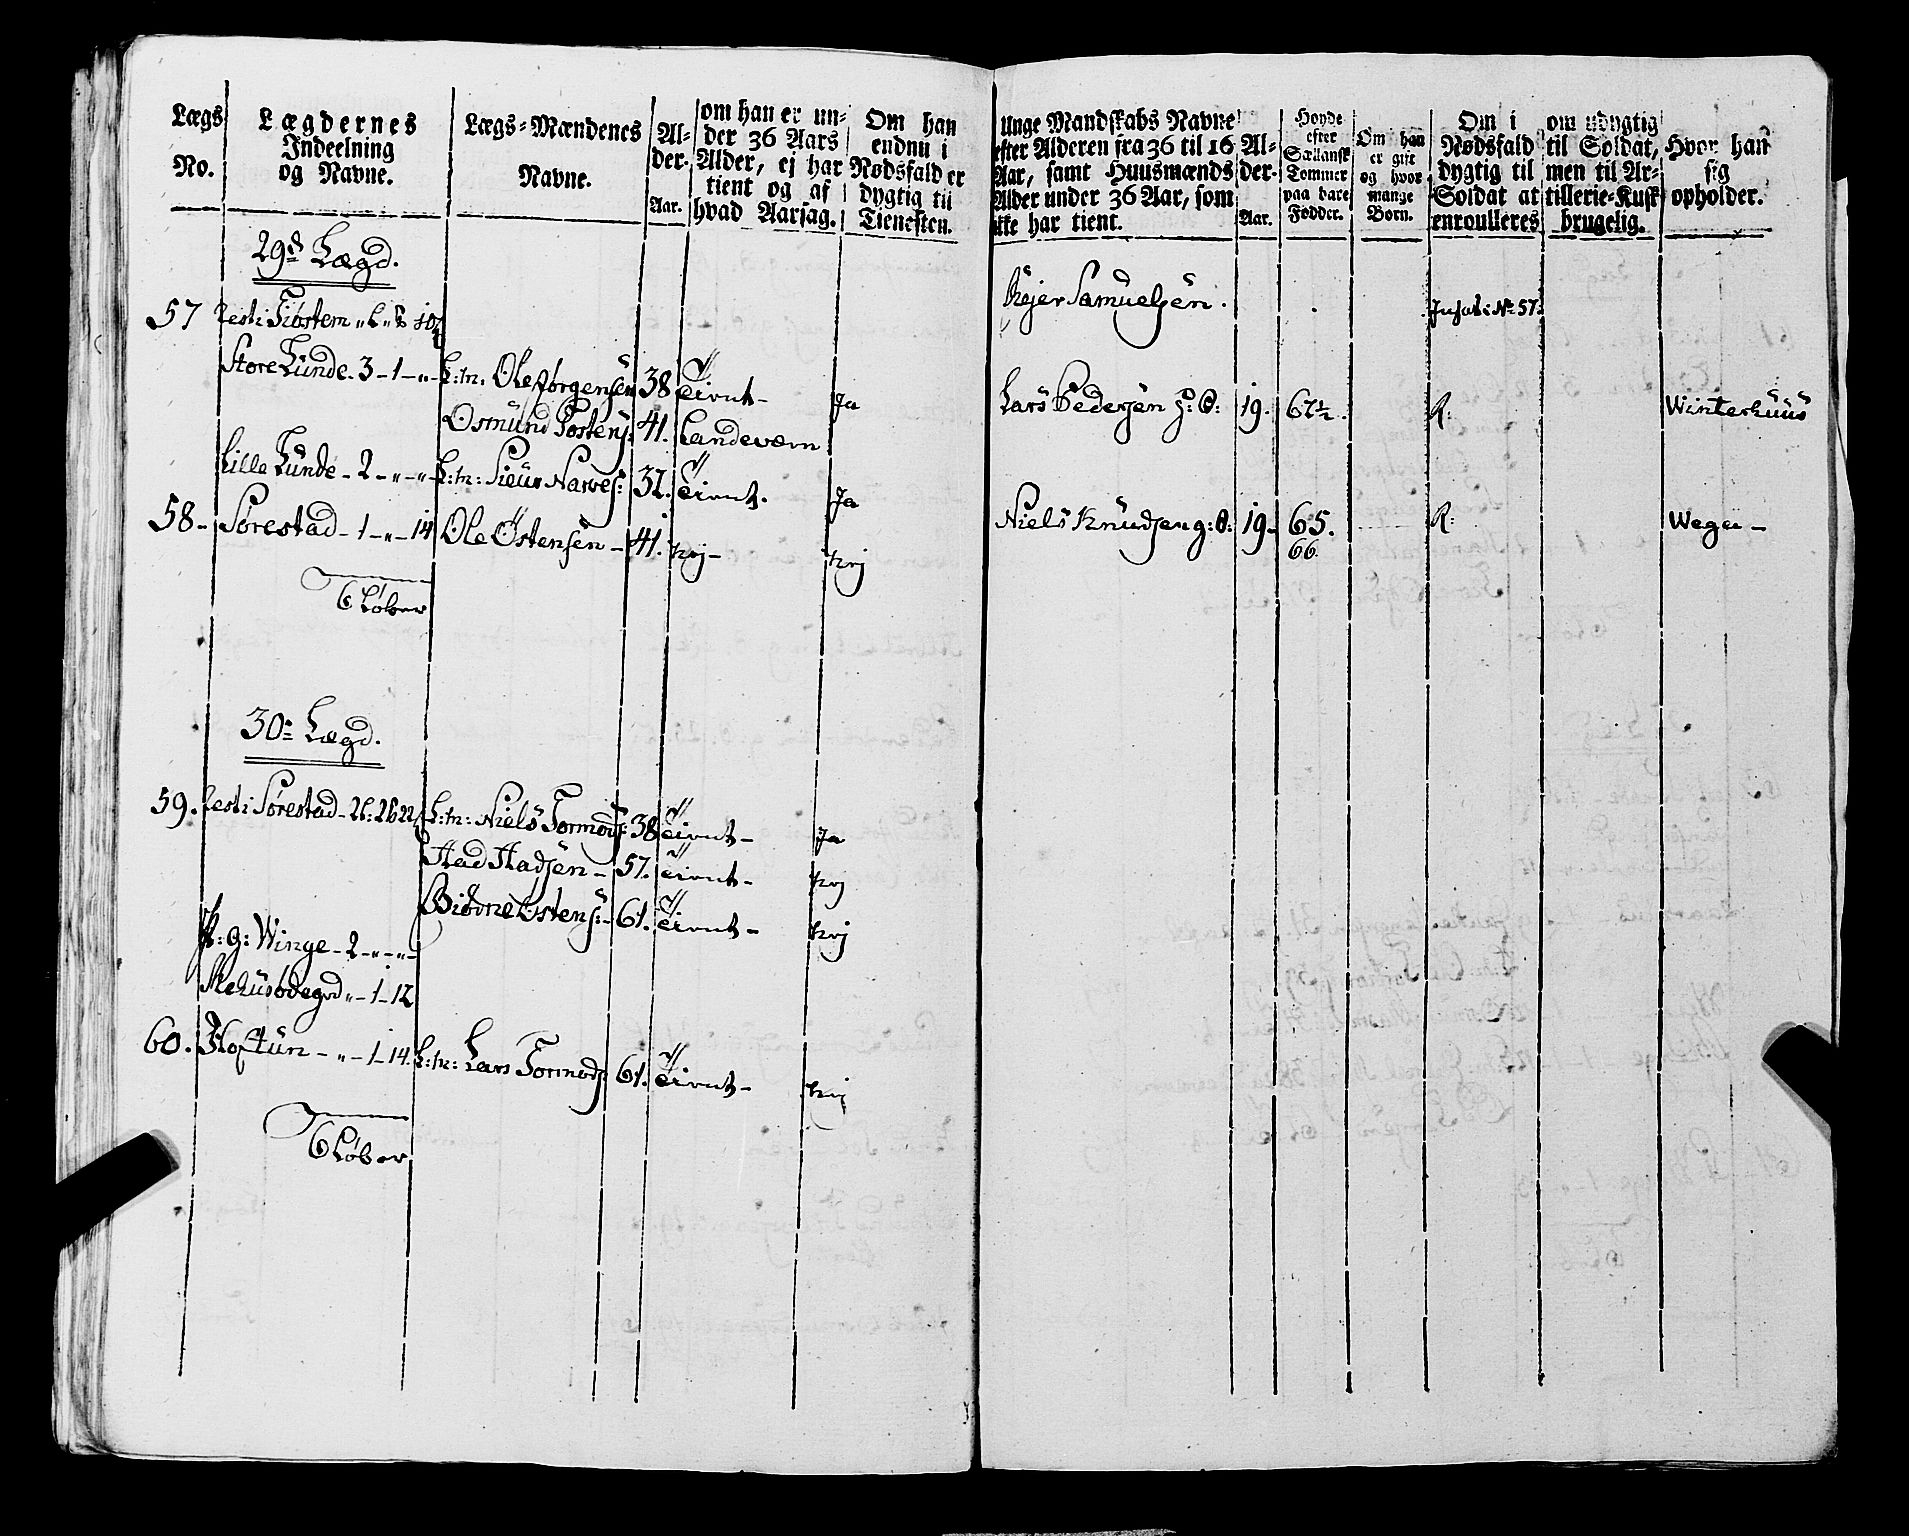 Lægs No.
Lægdernes Indeelning og Navne.
Lægs-Mændenes Navne.
Al-der. Aar.
om han er un-
der 36 Aars
Alder, ej har
tient og af
hvad Aarsag.
Om han
endnu i
Nødsfald er
dygtig til
Tienesten.
Unge Mandskabs Navne
efter Alderen fra 36 til 16
Aar, samt Huusmænds
Alder under 36 Aar, som
ikke har tient.
Al-der. Aar.
Høyde
efter
Siællansk
Tommer
paa bare
Fødder.
Om han
er gift
og hvor
mange
Børn.
Om i
Nødsfald
dygtig til
Soldat at
enroulleres
om udygtig
til Soldat,
men til Ar-
tillerie-Kusk
brugelig.
Hvor han
sig
opholder.
29d Lægd.
57 Rest i
Rejer Samuelsen. No 57.
Store Lunde - 3 - 1 - „ - L:m: Ole Jørgensen 38 Tient - Ja
Lars Pedersen 19. 67½. R: Winterhuus
Osmund 41. Landeværn
Lille Lunde - 2 - „ - „ - L:m: Siur Narves: 37. Tient. Ja
58 - Sørestad - 1 - „ - 14 Ole Østensen - 41. Nej - Nej
Niels Knudsen g: 19 - 65. R: Wegu -
66.
6 Løber
30: Lægd.
59. Rest i Sørestad - L:m: Niels Tormods: 38 Tient - Ja
57. Tient - Nej
Østens: - 61. Tient - Nej
P: g: Winge - 2 - „ - „ -
- 1 - 12
60. Hoftun - „ - 1 - 14. L:m: Lars Tormods: 61. Tient - Nej
6 Løber